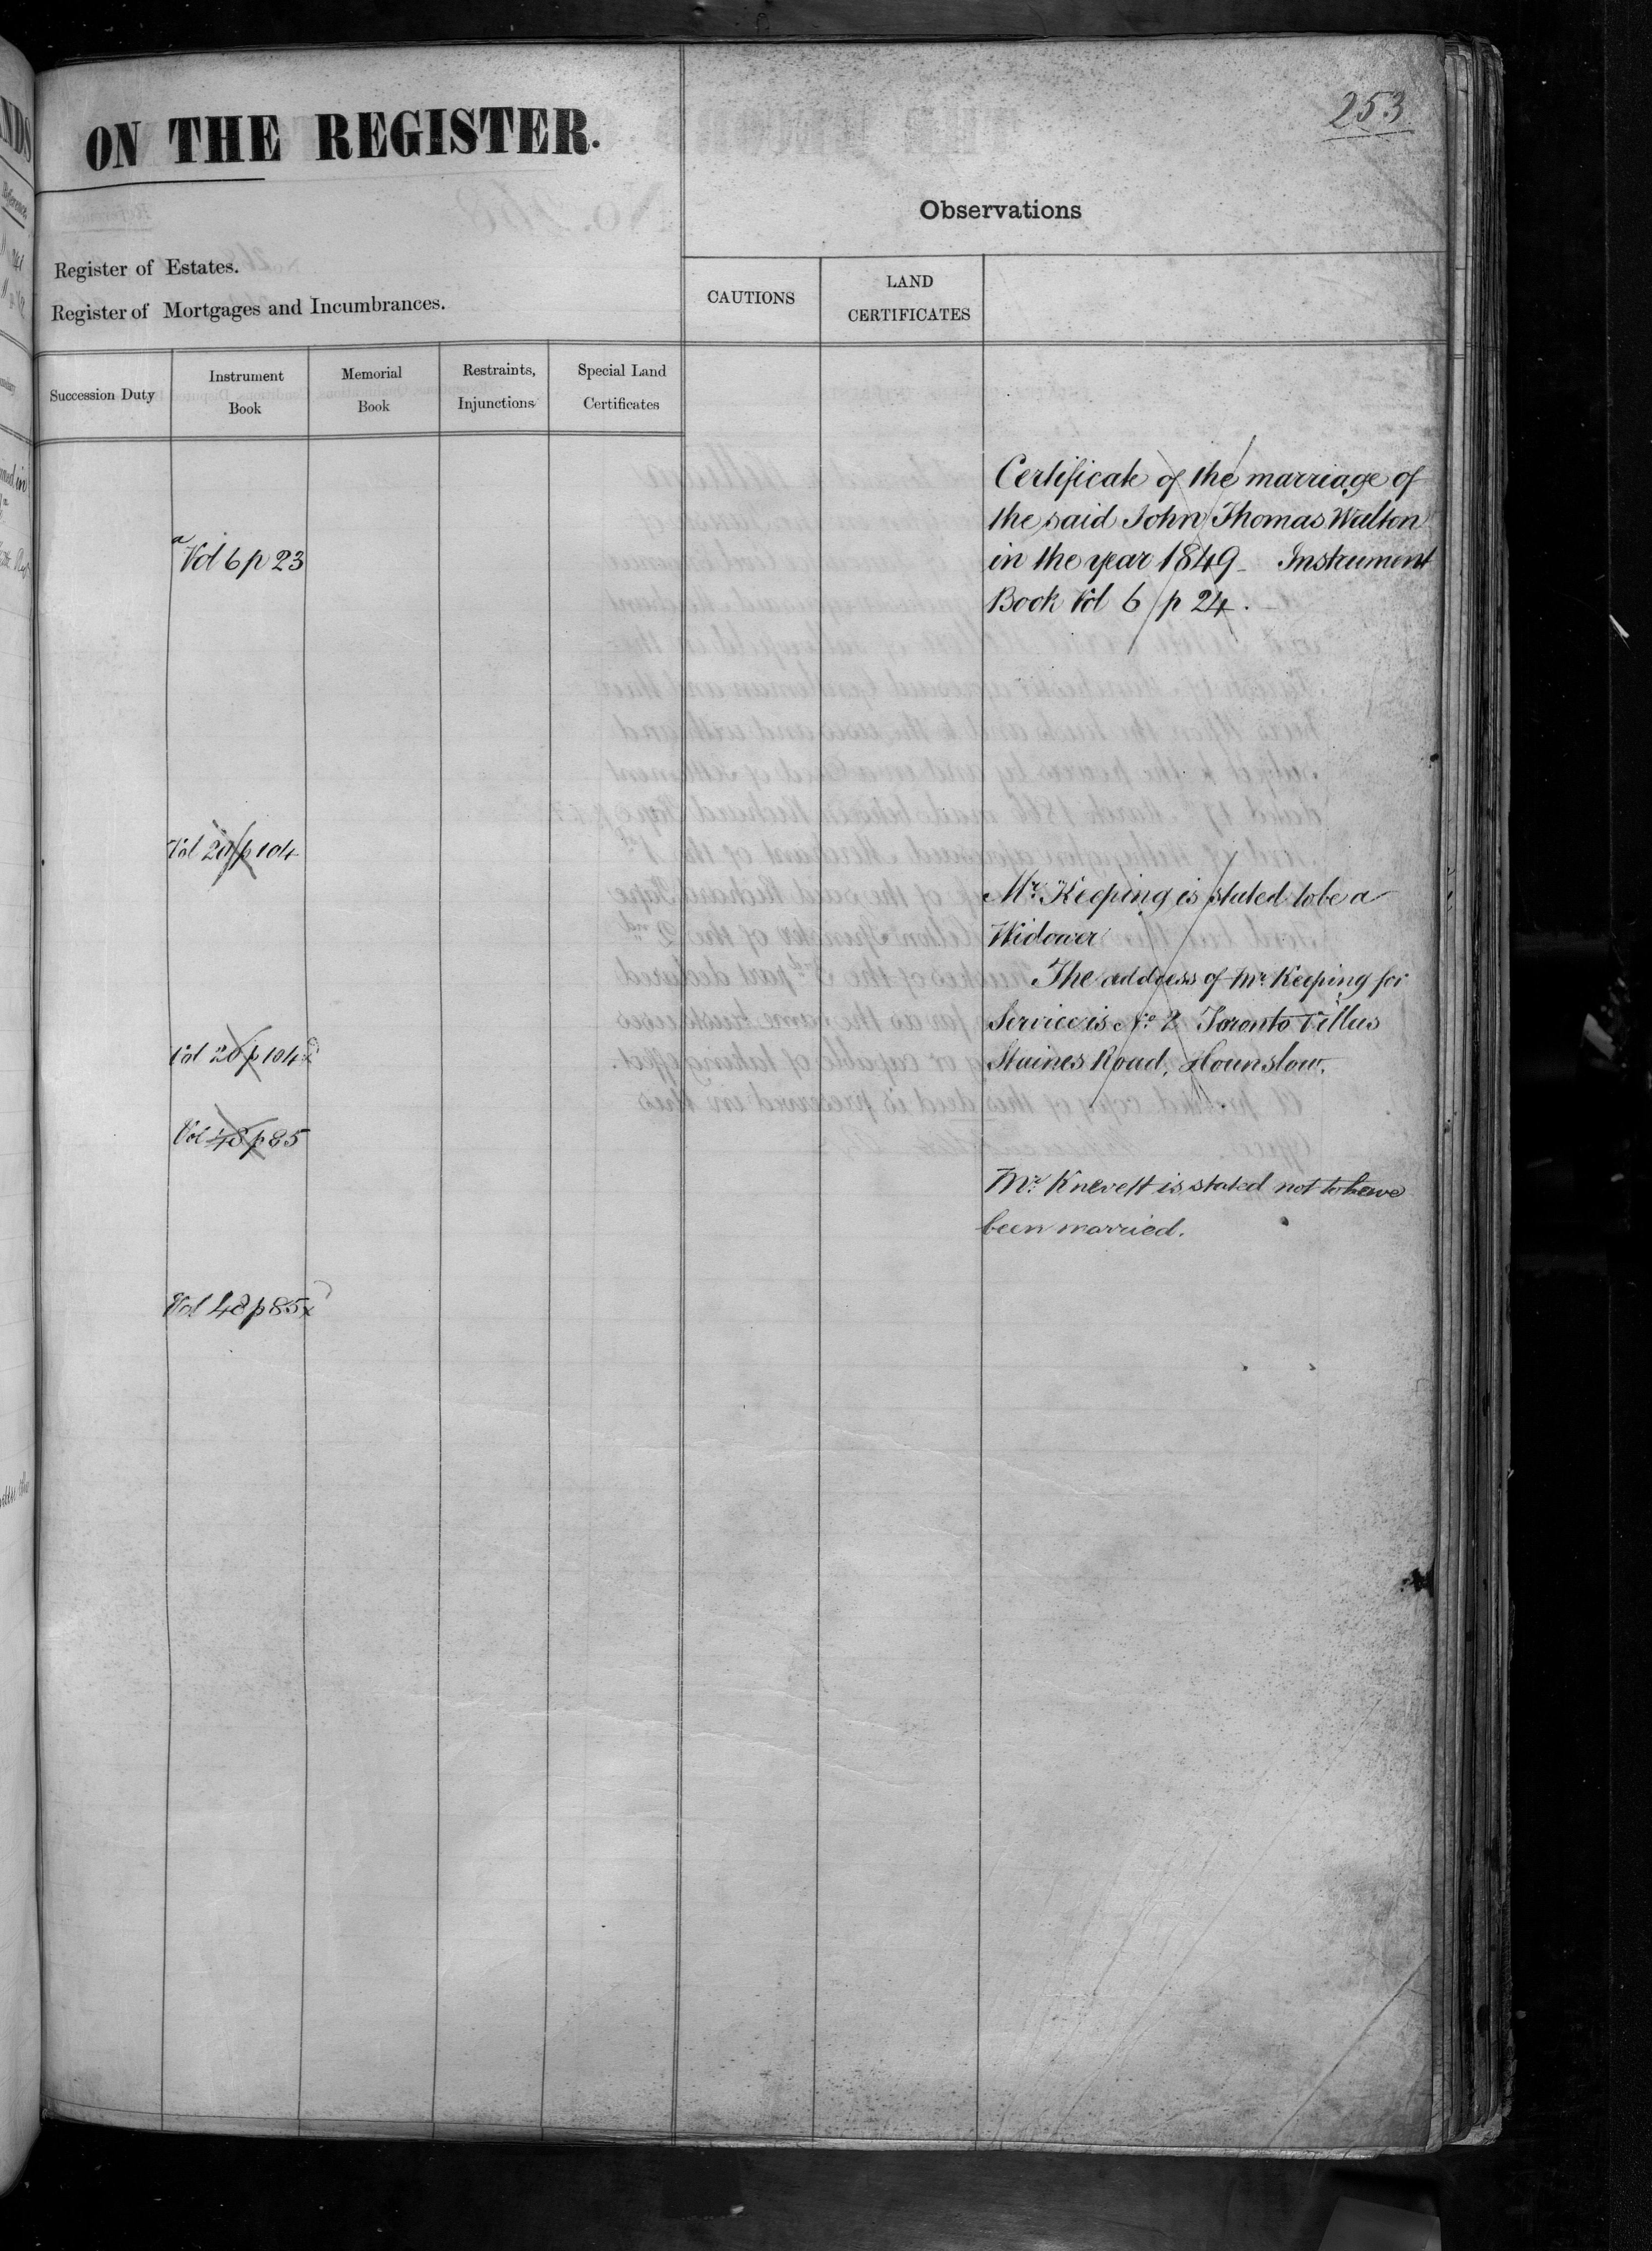 253
ON THE REGISTER.
Observations
Register of Estates.
Register of Mortgages and Incumbrances.
CAUTIONS
LAND
CERTIFICATES
Succession Duty
Instrument
Book
Memorial
Book
Restraints,
Injunctions
Special Land
Certificates
Certificate of the marriage of
the said John Thomas Walton
in the year 1849 - Instrument
Book Vol 6 p 24.
a
Vol 6 p 23
Vol 20 p 104
Mr. Keeping is stated to be a
Widower
The address of Mr. Keeping for
Service is No. 2 Toronto Villas
Staines Road, Hounslow.
Vol 20 p 104
Vol 48 p 85
Mr. Knevett is stated not to have
been married.
Vol 48 p 85x